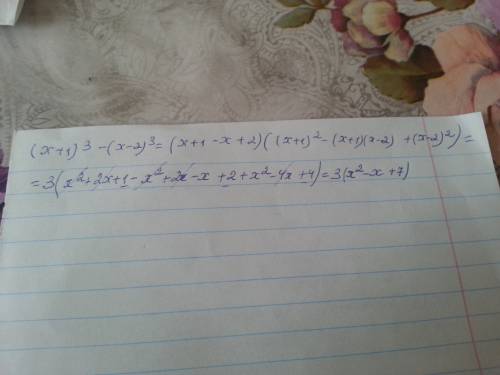 (x+1)³-(x-2)³=(x+1-x+2)((x+1)²-(x+1)(x-2)+(x-2)²)=
=3(x²+2x+1-x²+2x-x+2+x²-4x+4)=3(x²-x+7)